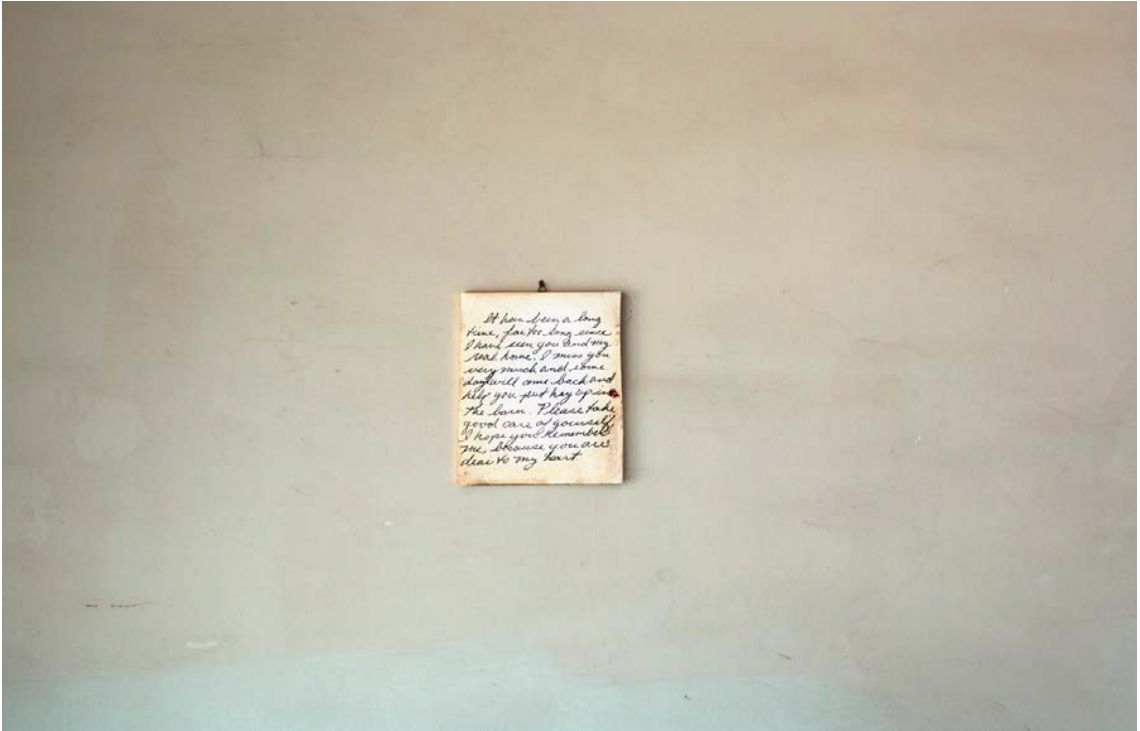 It has been a long
time, far too long since
I have seen you and my
real home. I miss you
very much and some
day will come back and
help you put hay up in
the barn. Please take
good care of yourself.
I hope you Remember
me, because you are
dear to my heart